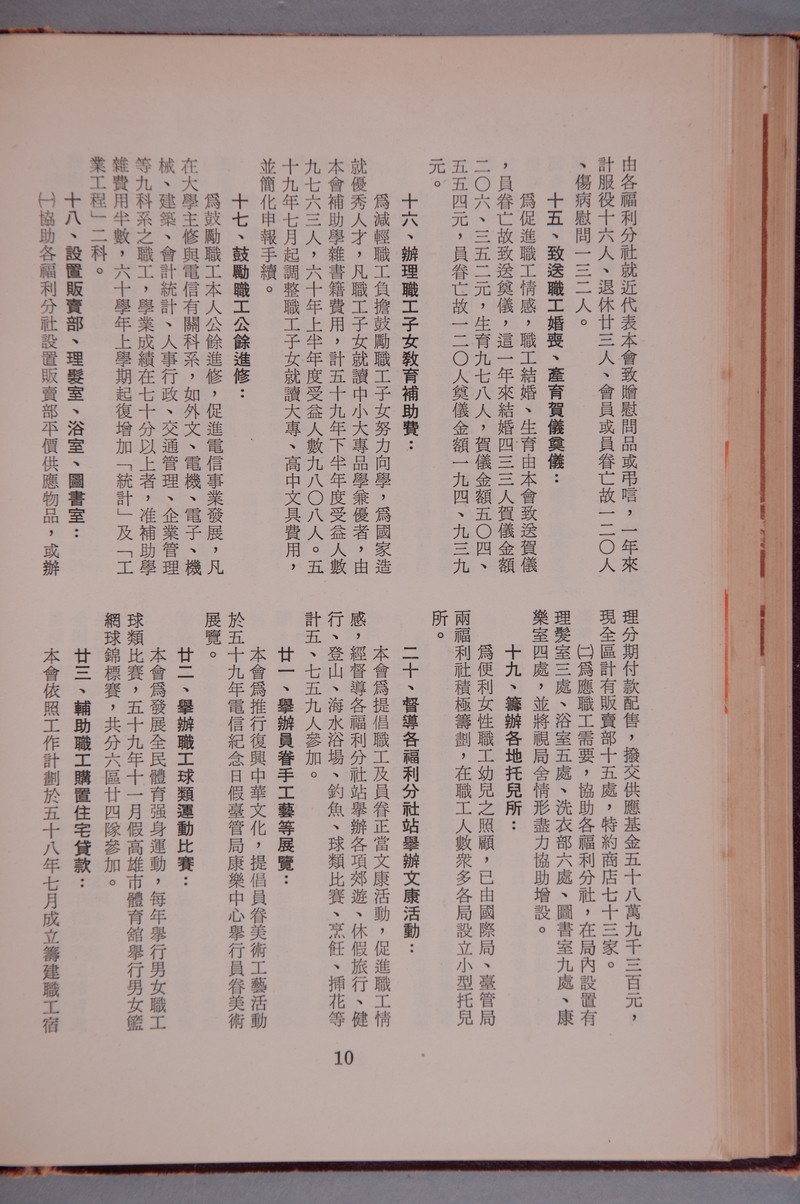 由各福利分社就近代表本會致贈慰問品或弔唁，一年來
計服役十六人、退休廿三人、會員或員眷亡故一二〇人
、傷病慰問一三二人。
十五、致送職工婚喪、產育賀儀奠儀：
爲促進職工情感，職工結婚、生育由本會致送賀儀
，員眷亡故致送奠儀，這一年來結婚四三三人賀儀金額
二〇六、三五二元，生育九七八人，賀儀金額五〇四、
五五四元，員眷亡故一二〇人奠儀金額一九四、九三九
元。
十六、辦理職工子女敎育補助費：
爲減輕職工負擔鼓勵職工子女努力向學，爲國家造
就優秀人才，凡職工子女就讀中小大專品學兼優者，由
本會補助學雜書籍費用，計五十九年下半年度受益人數
九七六三人，六十年上半年度受益人數九八〇八人。五
十九年七月起調整職工子女就讀大專、高中文具費用，
並簡化申報手續。
十七、鼓勵職工公餘進修：
爲鼓勵職工本人公餘進修，促進電信事業發展，凡
在大學主修與電信有關科系，如外文、電機、電子、機
械、建築、會計統計、人事行政、交通管理、企業管理
等九科系之職工，學業成績在七十分以上者，准補助學
雜費用半數，六十學年上學期起復增加「統計」及「工
業工程」二科。
十八、設置販賣部、理髮室、浴室、圖書室：
㈠協助各福利分社設置販賣部平價供應物品，或辦
理分期付款配售，撥交供應基金五十八萬九千三百元，
現全區計有販賣部十五處，特約商店七十三家。
㈡爲應職工需要，協助各福利分社，在局內設置有
理髮室三處、浴室五處、洗衣部六處、圖書室九處、康
樂室四處，並將視局舍情形盡力協助增設。
十九、籌辦各地托兒所：
爲便利女性職工幼兒之照顧，已由國際局、臺管局
兩福利社積極籌劃，在職工人數衆多各局設立小型托兒
所。
二十、督導各福利分社站舉辦文康活動：
本會爲提倡職工及員眷正當文康活動，促進職工情
感，經督導各福利分社站舉辦各項郊遊、休假旅行、健
行、登山、海水浴場、釣魚、球類比賽、烹飪、揷花等
計五、七五九人參加。
廿一、舉辦員眷手工藝等展覽：
本會爲推行復興中華文化，提倡員眷美術工藝活動
於五十九年電信紀念日假臺管局康樂中心舉行員眷美術
展覽。
廿二、舉辦職工球類運動比賽：
本會爲發展全民體育强身運動，每年舉行男女職工
球類比賽，五十九年十一月假高雄市體育館舉行男女籃
網球錦標賽，共分六區廿四隊參加。
廿三、輔助職工購置住宅貸款：
本會依照工作計劃於五十八年七月成立籌建職工宿
10